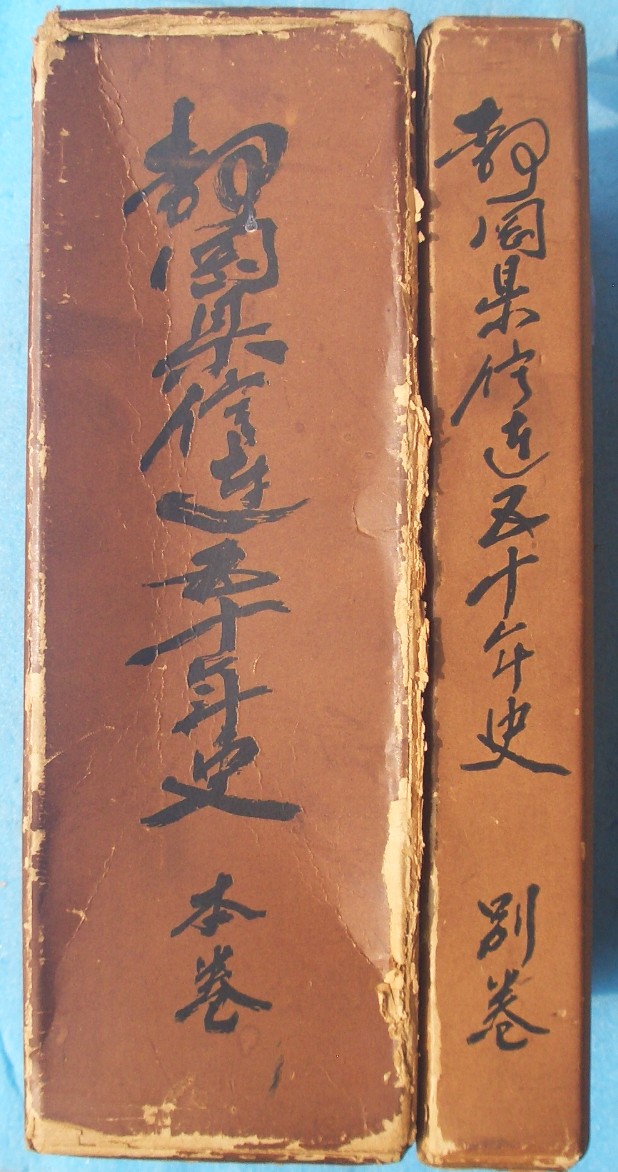 静岡県信連五十年史 本巻
静岡県信連五十年史 別巻